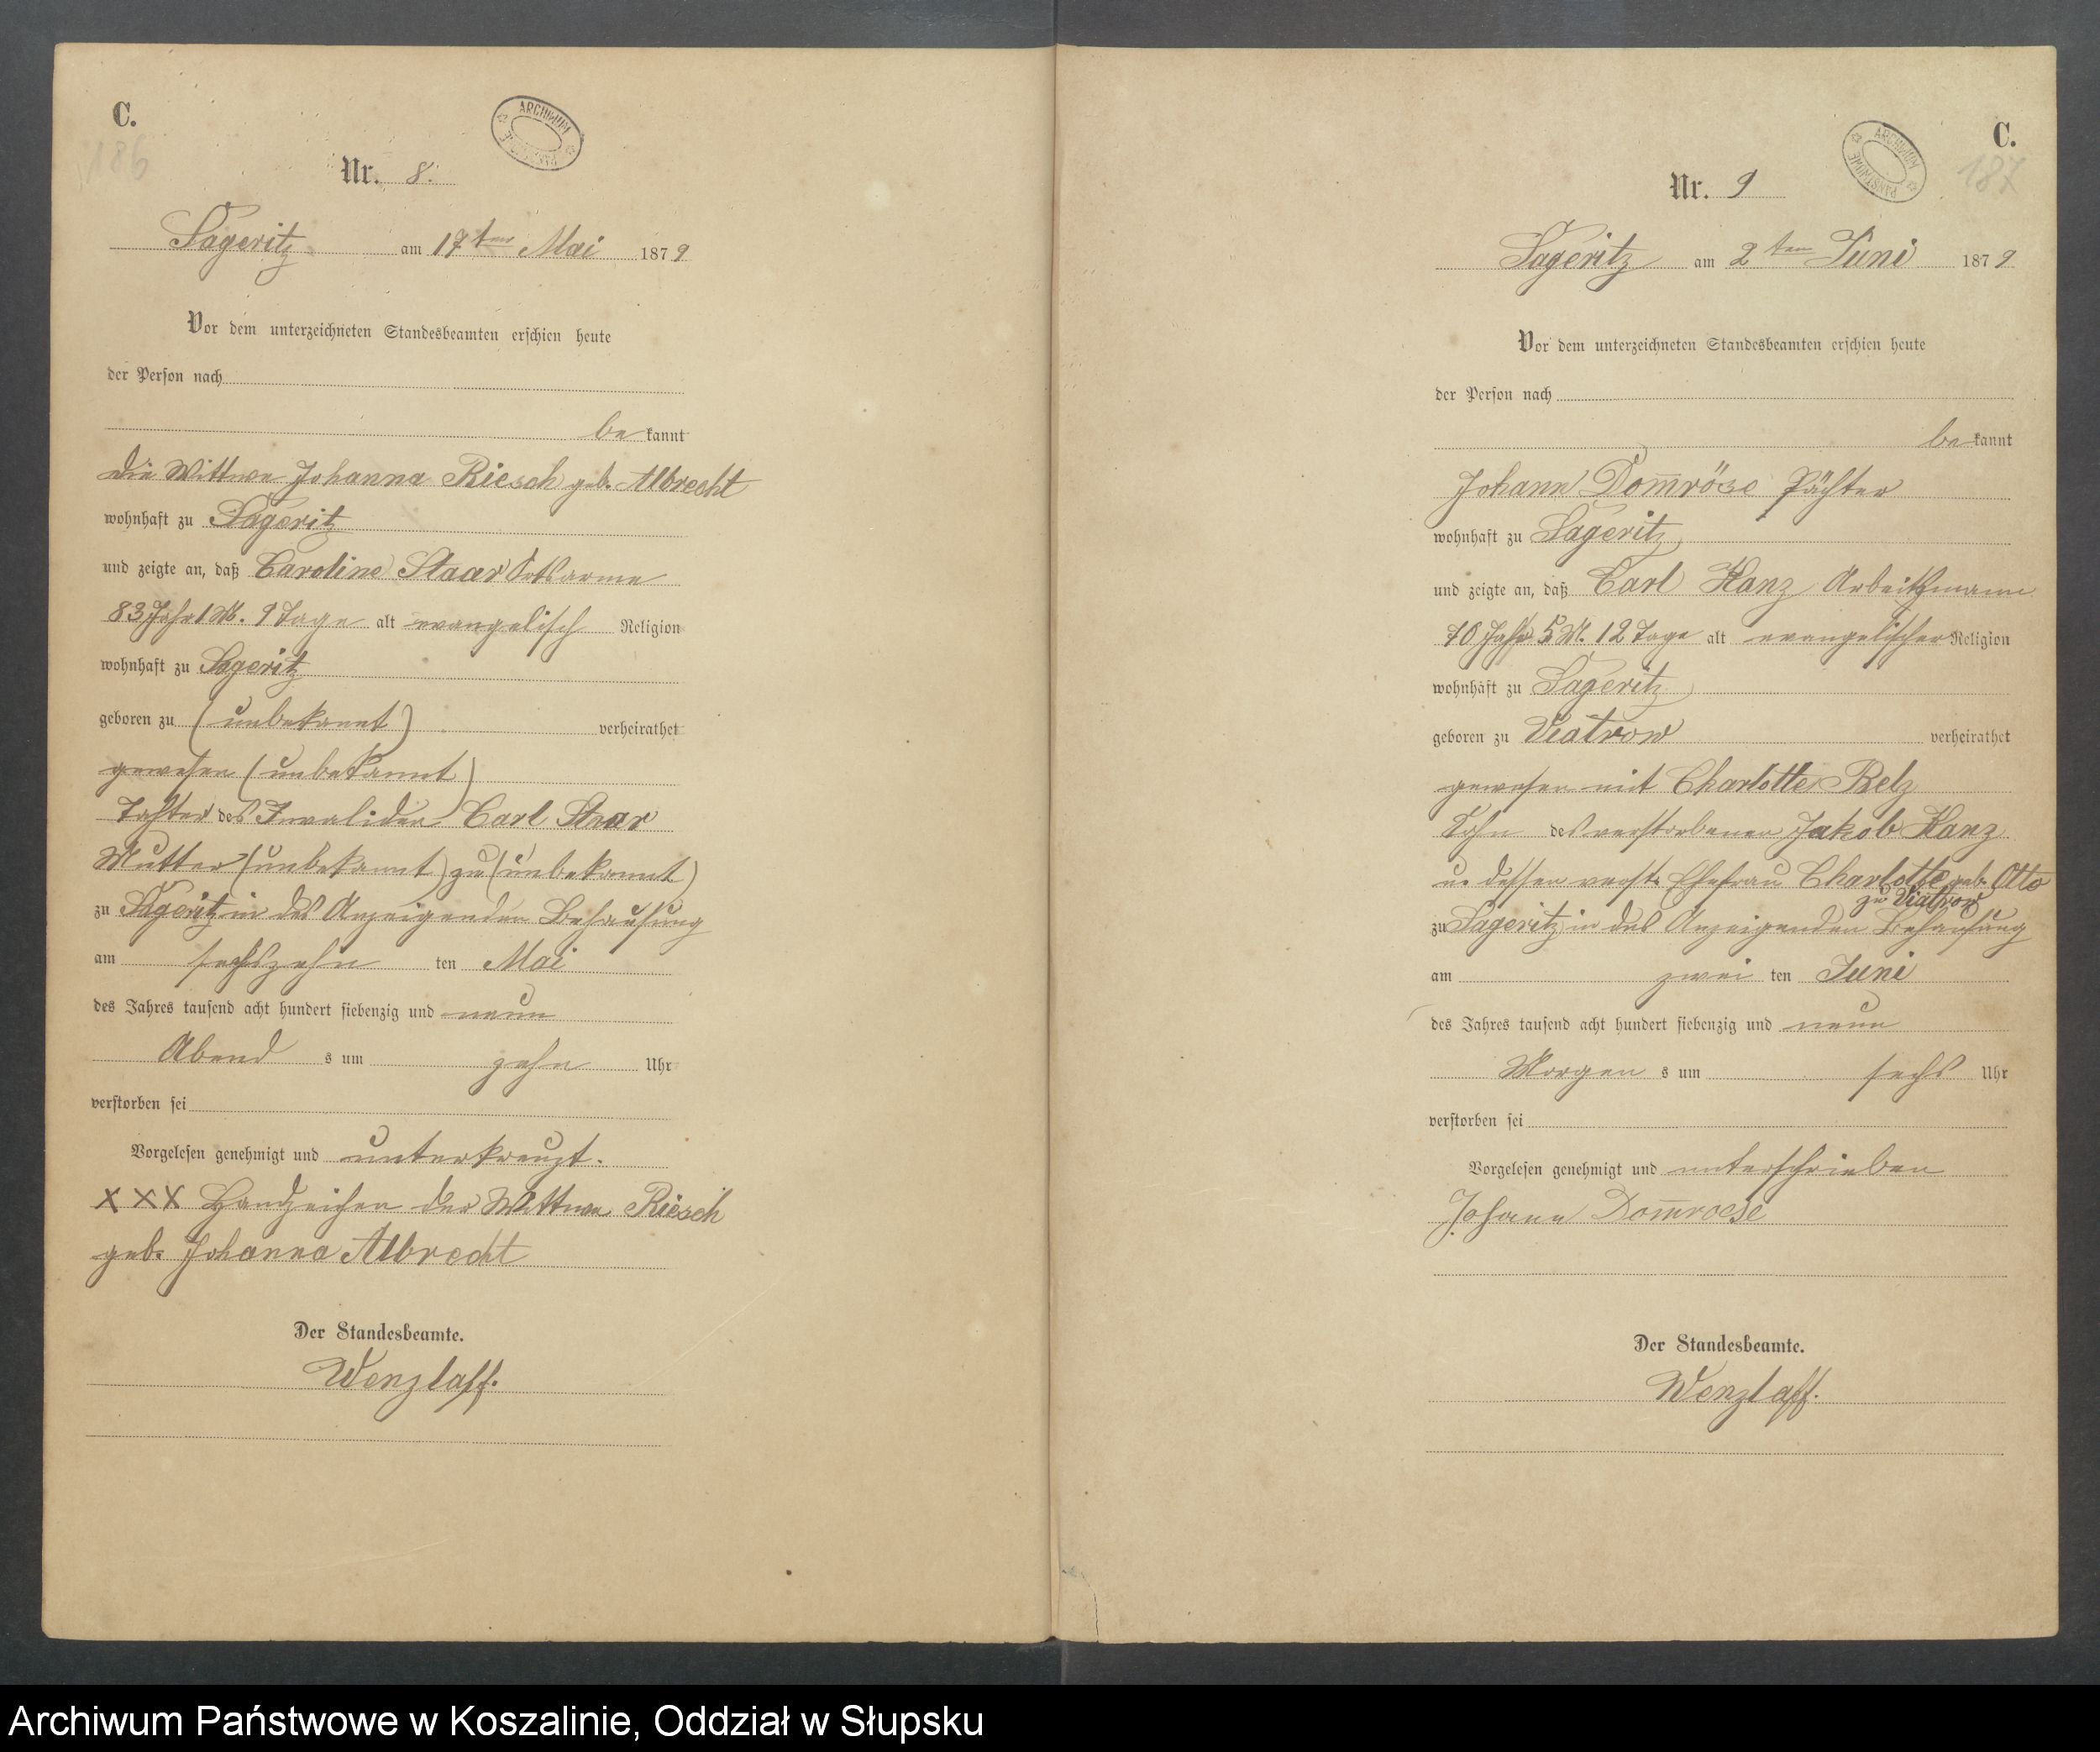 C.
186
ARCHIWUM PAŃSTWOWE
Nr. 8.
Sageritz am 17ten Mai 1879
Vor dem unterzeichneten Standesbeamten erschien heute
der Person nach
bekannt
die Wittwe Johanna Riesch geb. Albrecht
wohnhaft zu Sageritz
und zeigte an, daß Caroline Staar Ortsarme
83 Jahr 1 M. 9 Tage alt evangelisch Religion
wohnhaft zu Sageritz
geboren zu (unbekannt) verheirathet
gewesen (unbekannt)
Tochter des Invaliden Carl Staar
Mutter (unbekannt) zu (unbekannt)
zu Sageritz in des Anzeigenden Behausung
am sechszehn ten Mai
des Jahres tausend acht hundert siebenzig und neun
Abend s um zehn Uhr
verstorben sei
Vorgelesen genehmigt und unterkreuzt.
XXX Handzeichen der Wittwe Riesch
geb. Johanna Albrecht
Der Standesbeamte.
Wenzlaff.
C.
187
ARCHIWUM PAŃSTWOWE
Nr. 9
Sageritz am 2ten Juni 1879
Vor dem unterzeichneten Standesbeamten erschien heute
der Person nach
bekannt
Johann Dom̅röse Pächter
wohnhaft zu Sageritz
und zeigte an, daß Carl Kanz Arbeitsmann
70 Jahr 5 M. 12 Tage alt evangelischer Religion
wohnhaft zu Sageritz
geboren zu Viatrow verheirathet
gewesen mit Charlotte Belz
Sohn des verstorbenen Jakob Kanz
u. dessen verst. Ehefrau Charlotte geb. Otto
zu Viatrow
zu Sageritz in des Anzeigenden Behausung
am zwei ten Juni
des Jahres tausend acht hundert siebenzig und neun
Morgen s um sechs Uhr
verstorben sei
Vorgelesen genehmigt und unterschrieben
Johann Dom̅roese
Der Standesbeamte.
Wenzlaff.
Archiwum Państwowe w Koszalinie, Oddział w Słupsku